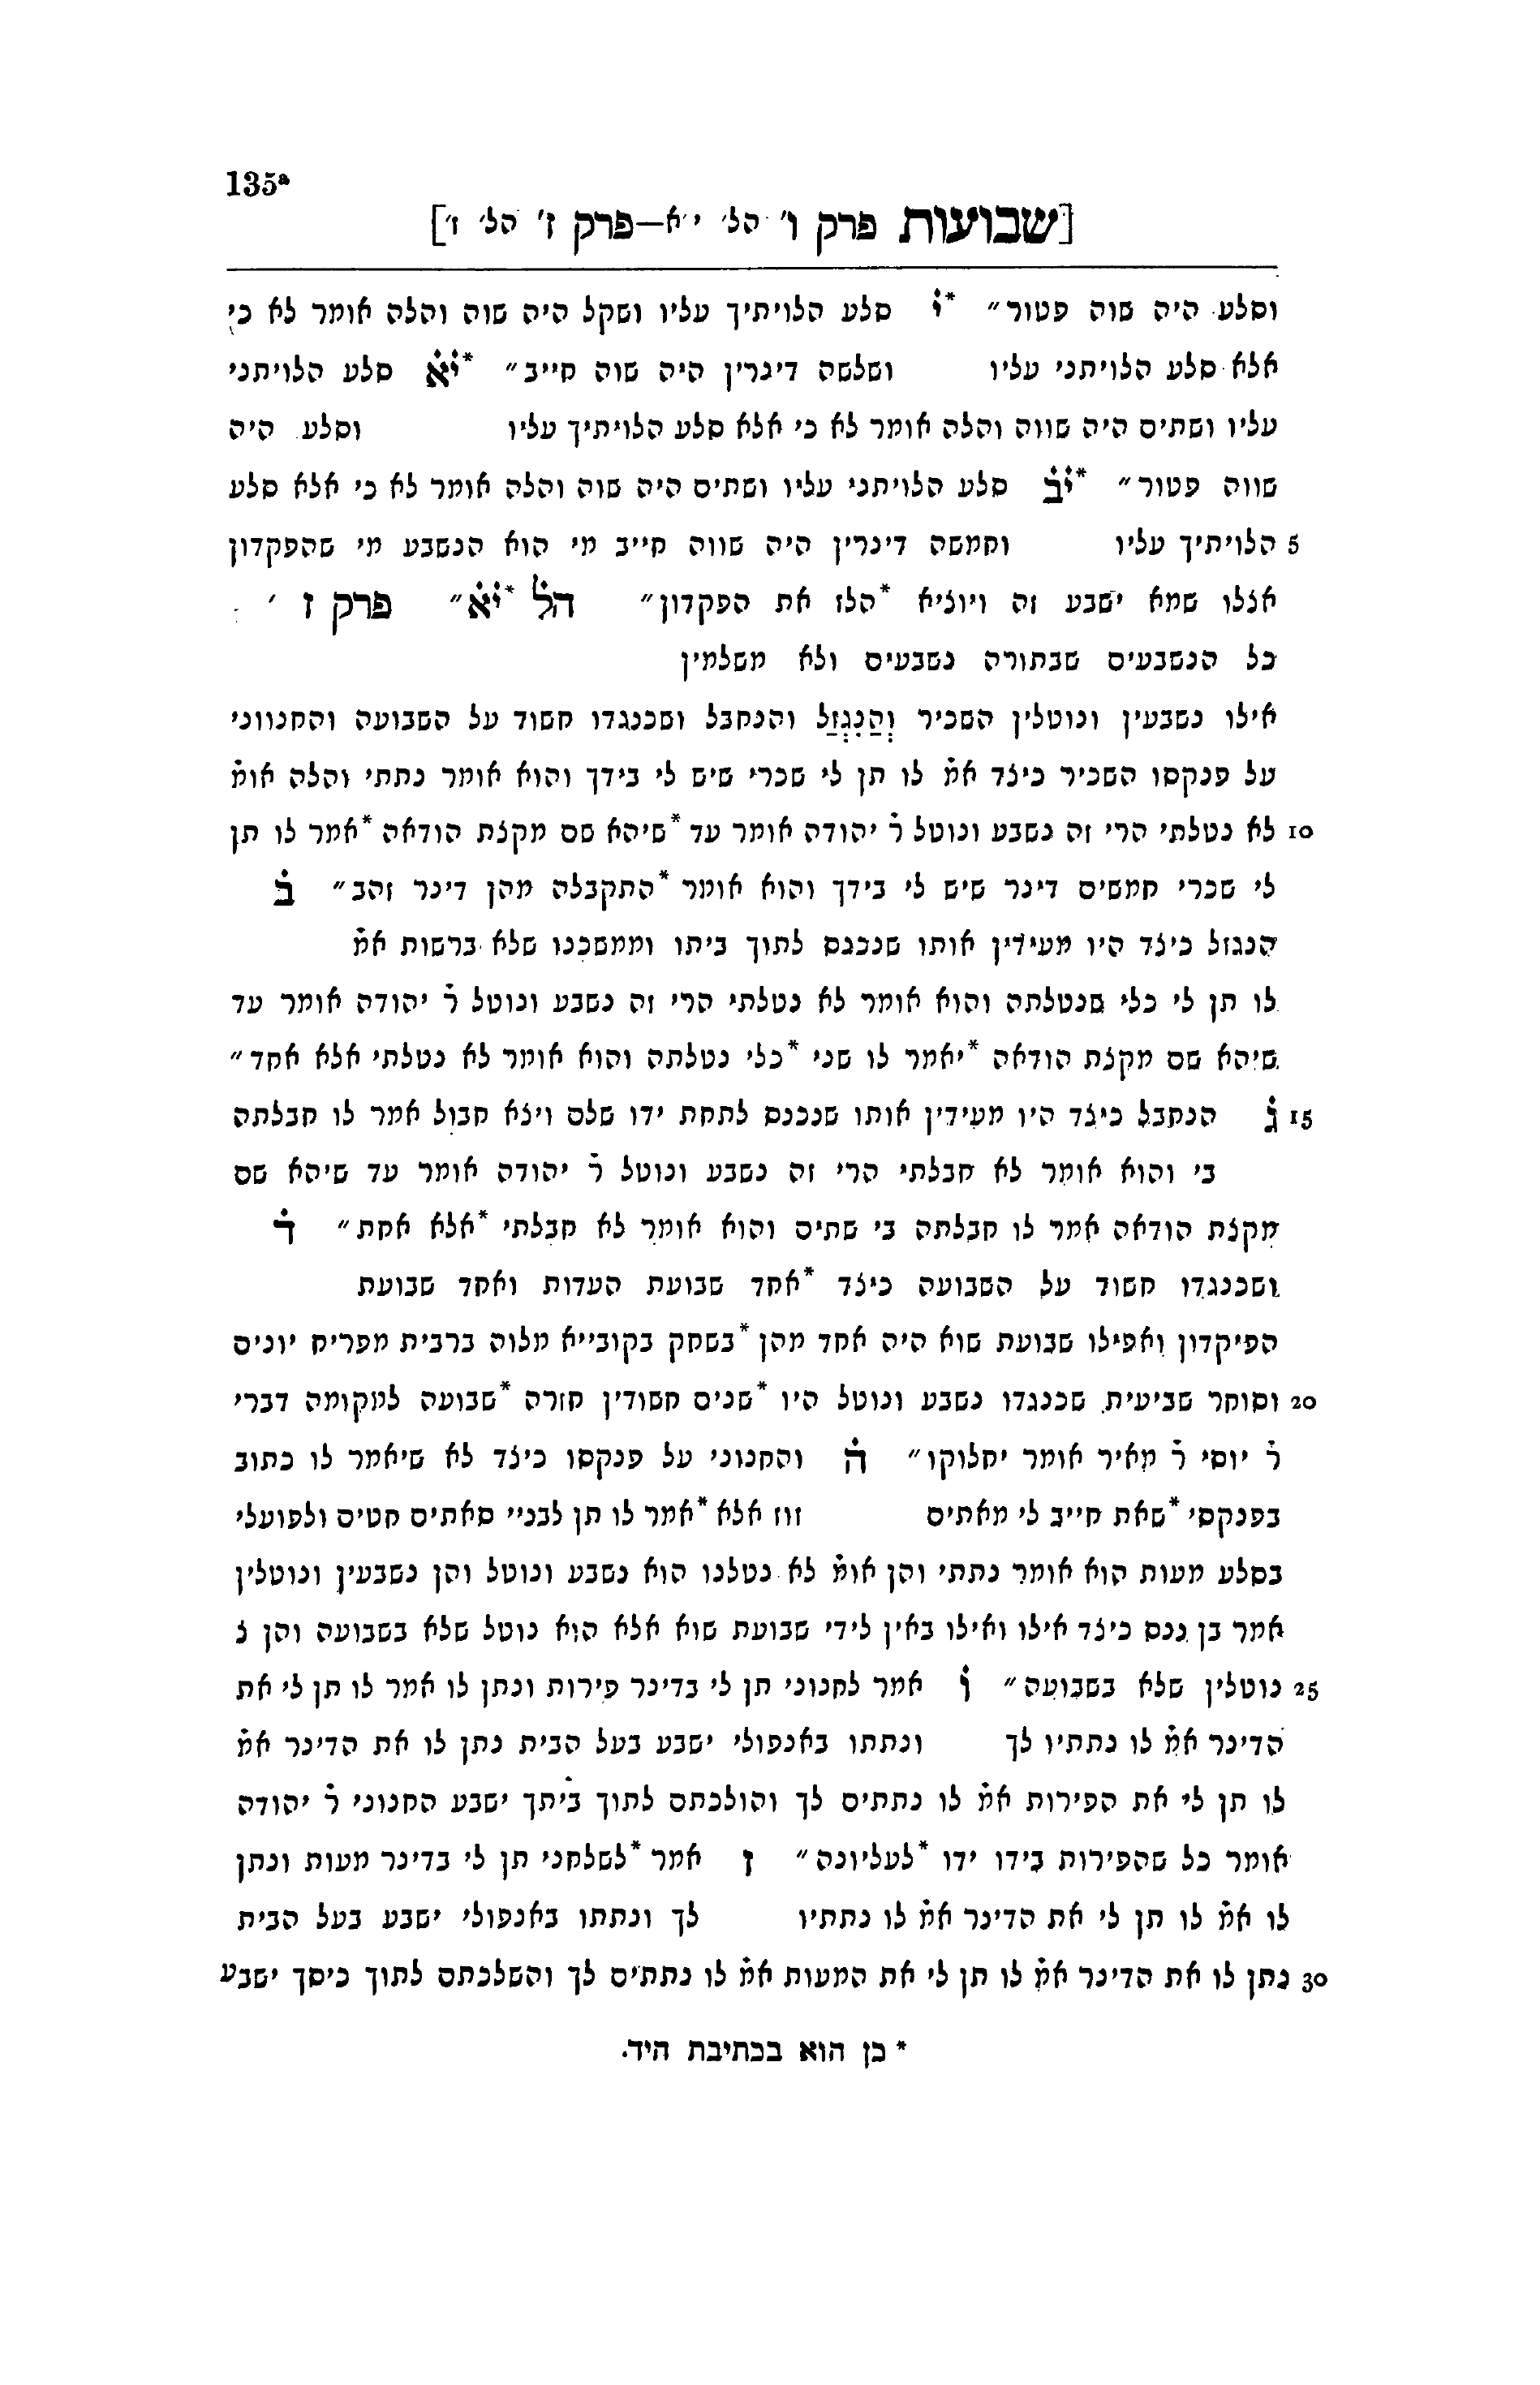 135ª
[שבועות פרק ו' הל' י'א—פרק ז' הל' ז']
וסלע היה שוה פטור״ *י̇ סלע הלויתיך עליו ושקל היה שוה והלה אומר לא כי
אלא סלע הלויתני עליו ושלשה דינרין היה שוה חייב״ *י̇א̇ סלע הלויתני
עליו ושתים היה שווה והלה אומר לא כי אלא סלע הלויתיך עליו וסלע היה
שווה פטור״ *י̇ב̇ סלע הלויתני עליו ושתים היה שוה והלה אומר לא כי אלא סלע
5 הלויתיך עליו וחמשה דינרין היה שווה חייב מי הוא הנשבע מי שהפקדון
אצלו שמא ישבע זה ויוציא *הלז את הפקדון״ הל̇ *י̇א̇״ פרק ז '
כל הנשבעים שבתורה נשבעים ולא משלמין
אילו נשבעין ונוטלין השכיר וְהַנִגְזַל והנחבל ושכנגדו חשוד על השבועה והחנווני
על פנקסו השכיר כיצד אמ̇ לו תן לי שכרי שיש לי בידך והוא אומר נתתי והלה אומ̇
10 לא נטלתי הרי זה נשבע ונוטל ר̇ יהודה אומר עד *שיהא שם מקצת הודאה *אמר לו תן
לי שכרי חמשים דינר שיש לי בידך והוא אומר *התקבלה מהן דינר זהב״ ב̇
הנגזל כיצד היו מעידין אותו שנכנס לתוך ביתו וממשכנו שלא ברשות אמ̇
לו תן לי כלי שנטלתה והוא אומר לא נטלתי הרי זה נשבע ונוטל ר̇ יהודה אומר עד
שיהא שם מקצת הודאה *יאמר לו שני *כלי נטלתה והוא אומר לא נטלתי אלא אחד״
15 ג̇ הנחבל כיצד היו מעידין אותו שנכנס לתחת ידו שלם ויצא חבול אמר לו חבלתה
בי והוא אומר לא חבלתי הרי זה נשבע ונוטל ר̇ יהודה אומר עד שיהא שם
מקצת הודאה אמר לו חבלתה בי שתים והוא אומר לא חבלתי *אלא אחת״ ד̇
ושכנגדו חשוד על השבועה כיצד *אחד שבועת העדות ואחד שבועת
הפיקדון ואפילו שבועת שוא היה אחד מהן *בשחק בקובייא מלוה ברבית מפריח יונים
20 וסוחר שביעית שכנגדו נשבע ונוטל היו *שנים חשודין חזרה *שבועה למקומה דברי
ר̇ יוסי ר̇ מאיר אומר יחלוקו״ ה̇ והחנוני על פנקסו כיצד לא שיאמר לו כתוב
בפנקסי *שאת חייב לי מאתים זוז אלא *אמר לו תן לבניי סאתים חטים ולפועלי
בסלע מעות הוא אומר נתתי והן אומ̇ לא נטלנו הוא נשבע ונוטל והן נשבעין ונוטלין
אמר בן ננס כיצד אילו ואילו באין לידי שבועת שוא אלא הוא נוטל שלא בשבועה והן נ
25 נוטלין שלא בשבועה״ ו̇ אמר לחנוני תן לי בדינר פירות ונתן לו אמר לו תן לי את
הדינר אמ̇ לו נתתיו לך ונתתו באנפולי ישבע בעל הבית נתן לו את הדינר אמ̇
לו תן לי את הפירות אמ̇ לו נתתים לך והולכתם לתוך ביתך ישבע החנוני ר̇ יהודה
אומר כל שהפירות בידו ידו *לעליונה״ ז̇ אמר *לשלחני תן לי בדינר מעות ונתן
לו אמ̇ לו תן לי את הדינר אמ̇ לו נתתיו לך ונתתו באנפולי ישבע בעל הבית
30 נתן לו את הדינר אמ̇ לו תן לי את המעות אמ̇ לו נתתים לך והשלכתם לתוך כיסך ישבע
* כן הוא בכתיבת היד.